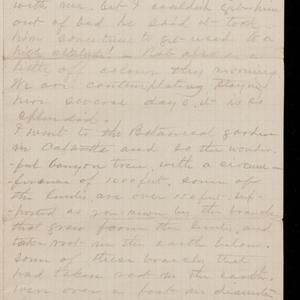 with me. but I couldn't get him
out of bed he said it took
him sometime to get used to a
high altitude! — Bob also is a
little off color this morning
We are contemplating staying
here several days, it is so
splendid.
I went to the Botanical garden
in Calcutta and so the wonder-
ful banyon tree, with a circum-
ference of 1000 feet. some of
the limbs, are over 100 feet. Sup-
ported as you know by the branches
that grow from the limbs, and
taken root in the earth below.
some of these branches that
had taken root in the earth,
were over a foot in diameter